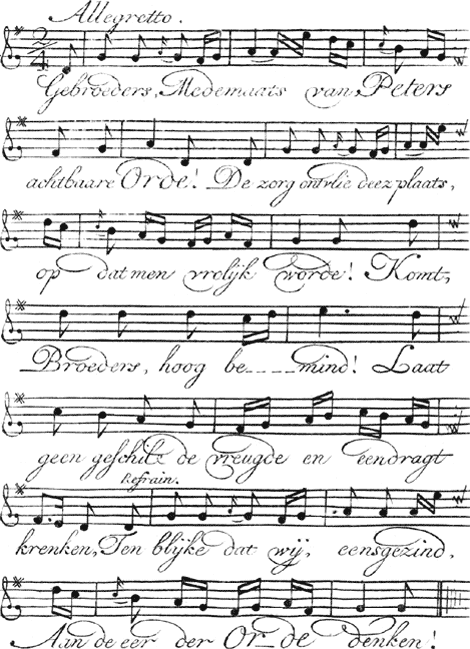 Allegretto.
2/4
Gebroeders, Medemaats van Peters
achtbaare Orde! De zorg ontvlie deez plaats,
op dat men vrolijk worde! Komt,
Broeders, hoog be____mind! Laat
geen geschil de vreugde en eendragt
Refrain.
krenken, Ten blijke dat wij, eensgezind,
Aan de eer der Or_de denken!